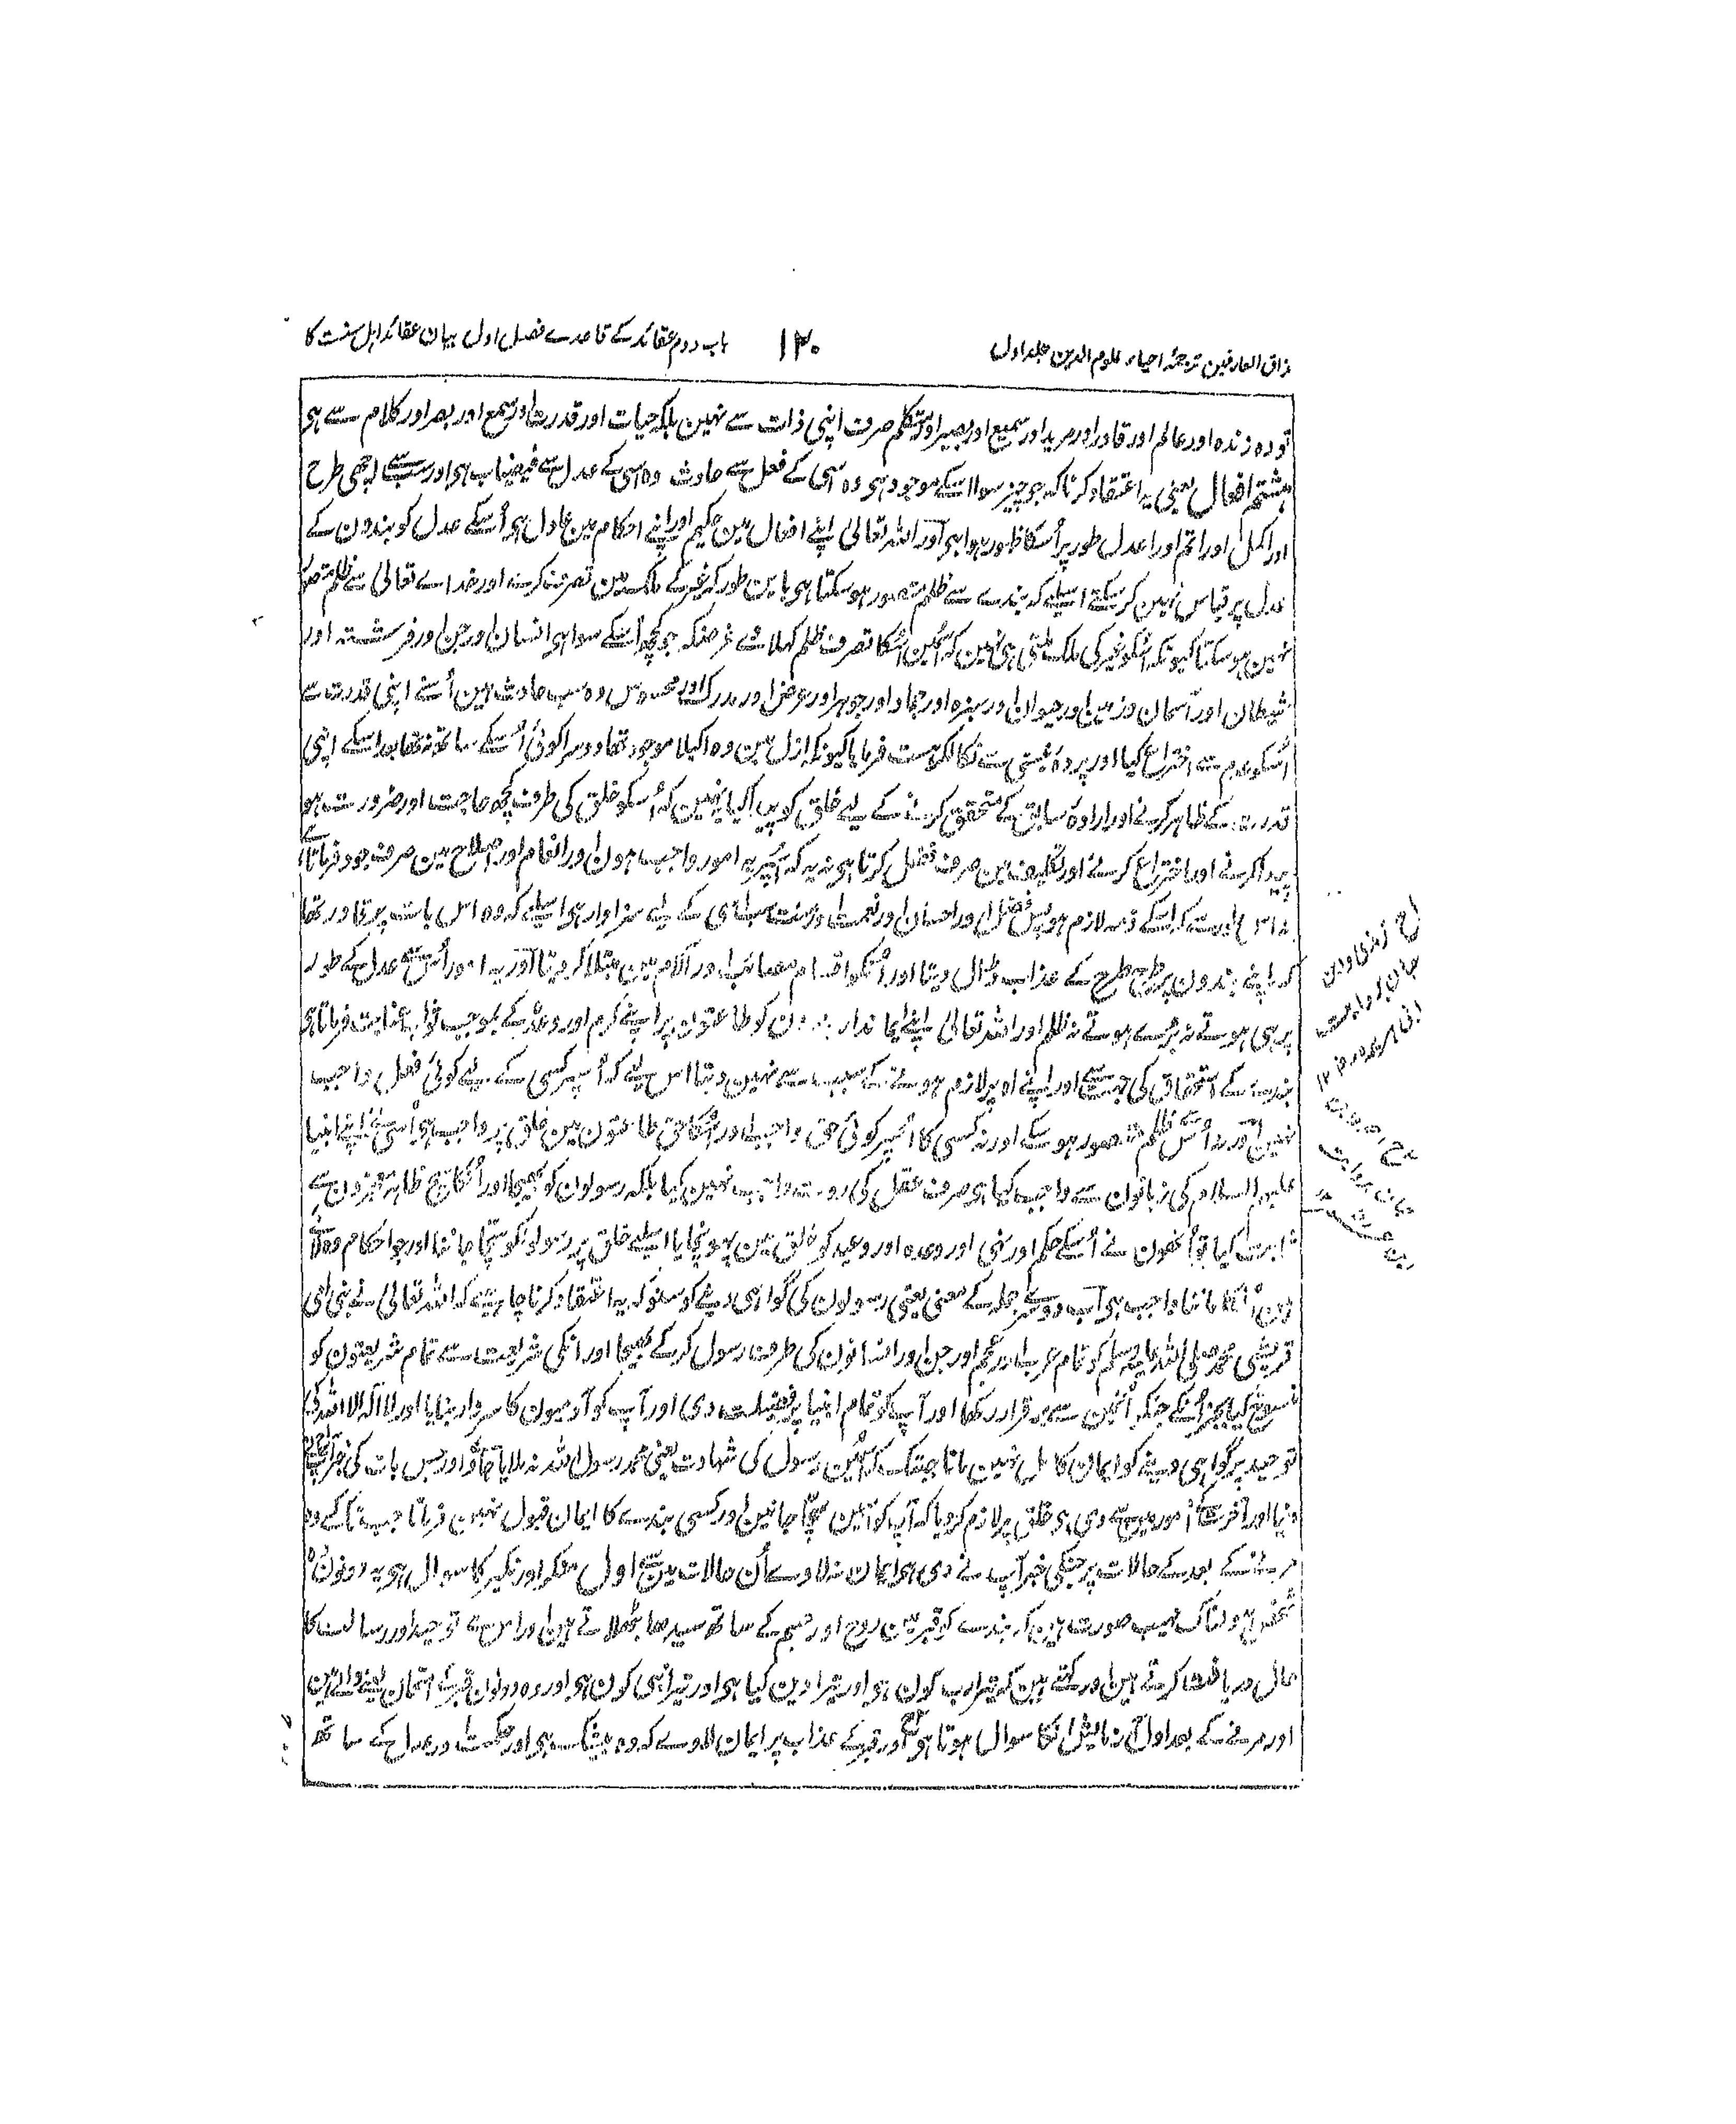 مذاق العارفین ترجمۂ احیاء علوم الدین جلد اول
۱۲۰
باب دوم عقائد کے قاعدے فصل اول بیان عقائد اہل سنت کا
تو وہ زندہ اور عالم اور قادر اور مرید اور سمیع اور بصیر اور متکلم صرف اپنی ذات سے نہین بلکہ حیات اور قدرت اور سمع اور بصر اور کلام سے ہی
ہشتم افعال یعنی یہ اعتقاد کرنا کہ جو چیز سوا اسکے موجود ہی وہ اسی کے فعل سے حادث وہ اسی کے عدل سے فیضیاب ہی اور سب سے اچھی طرح
اور اکمل اور اتم اور اعدل طور پر اُسکا ظہور ہوا ہی اور اللہ تعالیٰ اپنے افعال مین حکیم اور اپنے احکام مین عادل ہی اُسکے عدل کو بندون کے
عدل پر قیاس نہین کر سکتے اسلیے کہ بندے سے ظلم متصور ہو سکتا ہی باین طور کہ غیر کے ملک مین تصرف کرے اور خداے تعالیٰ سے ظلم متصور
نہین ہو سکتا کیونکہ اُسکو غیر کی ملک ملتی ہی نہین کہ اُسمین اُسکا تصرف ظلم کہلائے غرضکہ جو کچھ اُسکے سوا ہی انسان اور جن اور فرشتہ اور
شیطان اور آسمان و زمین اور حیوان اور سبزہ اور جماد اور جوہر اور عرض اور مدرک اور محسوس وہ سب حادث ہین اُسنے اپنی قدرت سے
اُسکو عدم سے اختراع کیا اور پردۂ نیستی سے نکالکر ہست فرمایا کیونکہ ازل مین وہ اکیلا موجود تھا دوسرا کوئی اُسکے ساتھ نہ تھا بعد اسکے اپنی
قدرت کے ظاہر کرنے اور ارادۂ سابق کے متحقق کرنے کے لیے خلق کو پیدا کیا یہ نہین کہ اُسکو خلق کی طرف کچھ حاجت اور ضرورت ہو
پیدا کرنے اور اختراع کرنے اور تکلیف مین صرف فضل کرتا ہی نہ یہ کہ اُسپر یہ امور واجب ہون اور انعام اور اصلاح مین صرف جود فرماتا ہے
لازم ہو پس فضل اور احسان اور نعمت اور منت سب اُسی کے لیے سزاوار ہی اسلیے کہ وہ اس بات پر قادر تھا
کہ اپنے بندون پر طرح طرح کے عذاب ڈال دیتا اور اُنکو اقسام مصائب اور آلام مین مبتلا کر دیتا اور یہ امور اُس سے عدل کے طور
پر ہی ہوتے نہ بُرے ہوتے نہ ظلم اور اللہ تعالیٰ اپنے ایماندار بندون کو طاعتون پر اپنے کرم اور وعدے کے بموجب ثواب عنایت فرماتا ہی
بندے کے استحقاق کی جہت سے اور اپنے اوپر لازم ہونے کے سبب سے نہین دیتا اس لیے کہ اُسپر کسی کے لیے کوئی فعل واجب
نہین اور نہ اُس سے ظلم متصور ہو سکے اور نہ کسی کا اُسپر کوئی حق واجب اور اُسکا حق طاعتون مین خلق پر واجب ہی اُسنے اپنے انبیا
علیہم السلام کی زبانون سے واجب کہا ہی صرف عقل کی رو سے واجب نہین کیا بلکہ رسولون کو بھیجا اور اُنکا سچ ظاہر معجزون سے
ثابت کیا تو اُنھون نے اُسکے حکم اور نہی اور وعدہ اور وعید کو خلق مین پہونچایا اسلیے خلق پر رسولونکو سچا جاننا اور جو احکام وہ لائے
ہون اُنکا ماننا واجب ہی اب دوسرے جملہ کے معنی یعنی رسولون کی گواہی دینے کو سنو کہ یہ اعتقاد کرنا چاہیے کہ اللہ تعالیٰ نے نبی امی
قریشی محمد صلی اللہ علیہ وسلم کو تمام عرب اور عجم اور جن اور انسانون کی طرف رسول کرکے بھیجا اور انکی شریعت سے تمام شریعتون کو
منسوخ کیا بجز اُنکے جنکو اُنمین سے برقرار رکھا اور آپ کو تمام انبیا پر فضیلت دی اور آپ کو آدمیون کا سردار بنایا اور لا الہ الا اللہ کی
توحید پر گواہی دینے کو ایمان کامل نہین مانا جبتک کہ اُسمین رسول کی شہادت یعنی محمد رسول اللہ نہ ملایا جاوے اور جس بات کی خبر آپ نے
دنیا اور آخرت کے امور مین سے دی ہی خلق پر لازم کر دیا کہ آپ کو اُسمین سچا جانین اور کسی بندے کا ایمان قبول نہین فرماتا جب تک کہ وہ
مرنے کے بعد کے حالات پر جنکی خبر آپ نے دی ہی ایمان نہ لاوے اُن حالات مین سے اول منکر اور نکیر کا سوال ہی یہ دونون
شخص ہولناک مہیب صورت ہین کہ بندے کو قبر مین روح اور جسم کے ساتھ سیدھا بٹھلاتے ہین اور اس سے توحید اور رسالت کا
حال دریافت کرتے ہین اور کہتے ہین کہ تیرا رب کون ہی اور تیرا دین کیا ہی اور تیرا نبی کون ہی اور وہ دونون قبر کے امتحان لینے والے ہین
اور مرنے کے بعد اول آزمایش اُنکا سوال ہوتا ہی اور قبر کے عذاب پر ایمان لاوے کہ وہ بیشک ہی اور حکمت اور عدل کے ساتھ
ترمذی وابن
حبان بروایت
ابی ہریرہ ۱۲